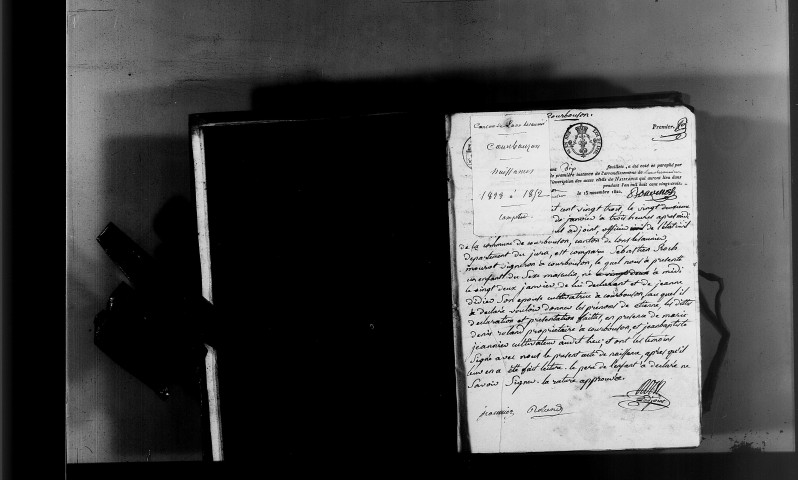 Courbouson.
Canton de Lons-le-Saunier
Courbouzon
Naissances
1823 à 1852
Complet
Premier.
dix feuillets, a été coté et paraphé par
de première instance de l'arrondissement de
l'inscription des actes civils de NAISSANCE qui auront lieu dans
pendant l'an mil huit cent vingt-trois.
le 15 novembre 1822.
cent vingt trois, le vingt deuxième
de janvier à trois heures après midi
adjoint, officier de l'état civil
de la commune de courbouson, canton de Lons lesaunier,
département du jura, est comparu Sébastien
mourot vigneron à courbouson, le quel nous a présenté
un enfant du Sexe masculin, né le vingt deux à midi
le vingt deux janvier, de lui déclarant et de jeanne
Son épouse cultivatrice à courbouson, au quel il
a déclaré vouloir donner les prénoms de etienne, les dittes
déclaration et présentation faites en présence de marie
denis roland propriétaire à courbouson, et jeanbaptiste
jeannier cultivateur audit lieu; et ont les témoins
Signé avec nous le présent acte de naissance, après qu'il
leur en a été fait lecture. le père de l'enfant a déclaré ne
Savoir Signer. la rature approuvée.
jeannier Roland
adjoint